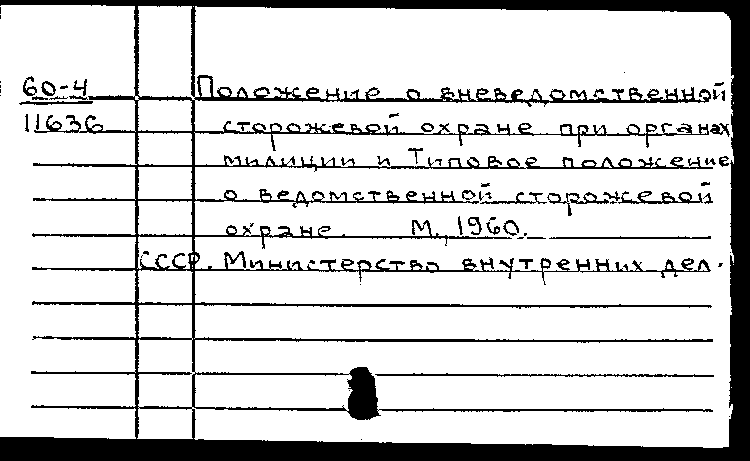 60-4 Положение о вневедомственной
11636 сторожевой охране при органах
милиции и Типовое положение
о ведомственной сторожевой
охране. М., 1960.
СССР. Министерство внутренних дел.